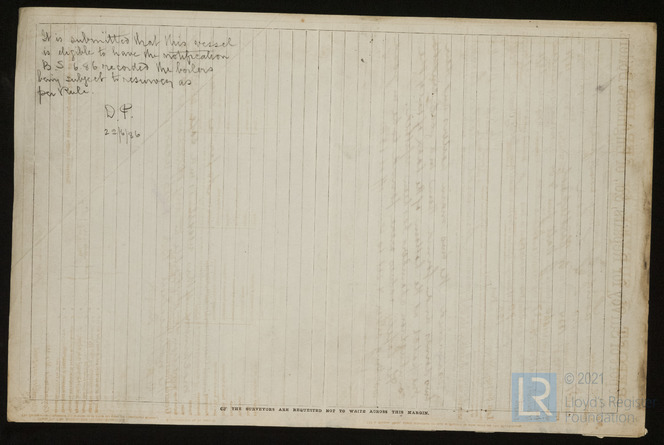 It is submitted that this vessel
is eligible to have the notification
B.S. 6.86 recorded the boilers
being subject to resurvey as
per Rule.
D.P.
22/6/86
THE SURVEYORS ARE REQUESTED NOT TO WRITE ACROSS THIS MARGIN.
© 2021
Lloyd's Register
Foundation
LR